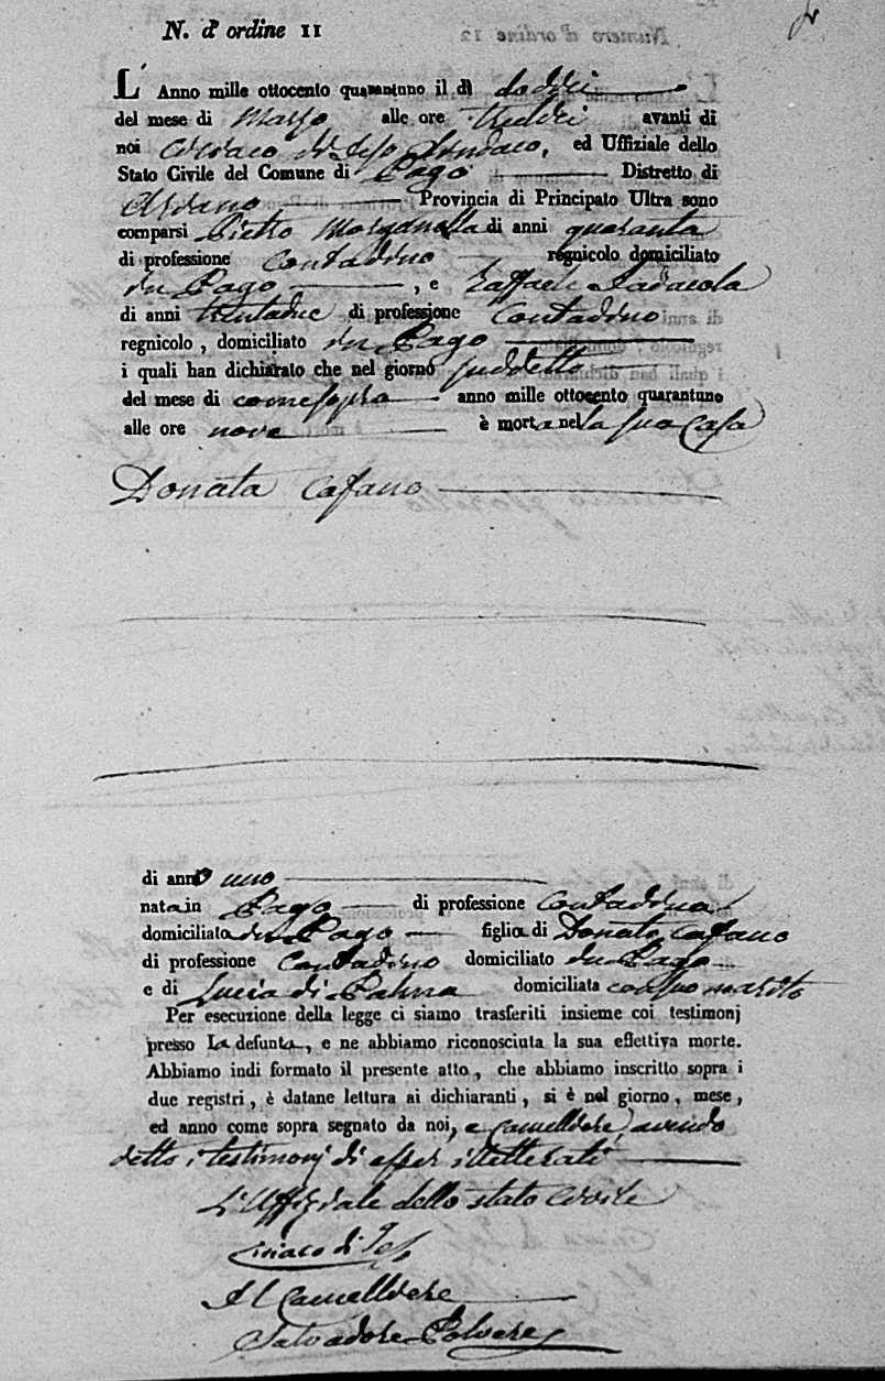 N. d' ordine 11
L' Anno mille ottocento quarantuno il dì dodici
del mese di Marzo alle ore tredici avanti di
noi Ciriaco di Teso Sindaco, ed Uffiziale dello
Stato Civile del Comune di Pago Distretto di
Ariano Provincia di Principato Ultra sono
comparsi Pietro Morganella di anni quaranta
di professione Contadino regnicolo domiciliato
in Pago , e Raffaele
di anni trentadue di professione Contadino
regnicolo , domiciliato in Pago
i quali han dichiarato che nel giorno suddetto
del mese di come sopra anno mille ottocento quarantuno
alle ore nove è morta nella sua casa
Donata Casano
di anno uno
nata in Pago di professione Contadina
domiciliata in Pago figlia di Donato Casano
di professione Contadino domiciliato in Pago
e di Lucia di Palma domiciliata con suo marito
Per esecuzione della legge ci siamo trasferiti insieme coi testimonj
presso La defunta, e ne abbiamo riconosciuta la sua effettiva morte.
Abbiamo indi formato il presente atto, che abbiamo inscritto sopra i
due registri, è datane lettura ai dichiaranti, si è nel giorno, mese,
ed anno come sopra segnato da noi, e Cancelliere, avendo
detto i testimonj di esser illetterati
L'Uffiziale dello stato Civile
Ciriaco di Teso
Il Cancelliere
Salvadore Polvere